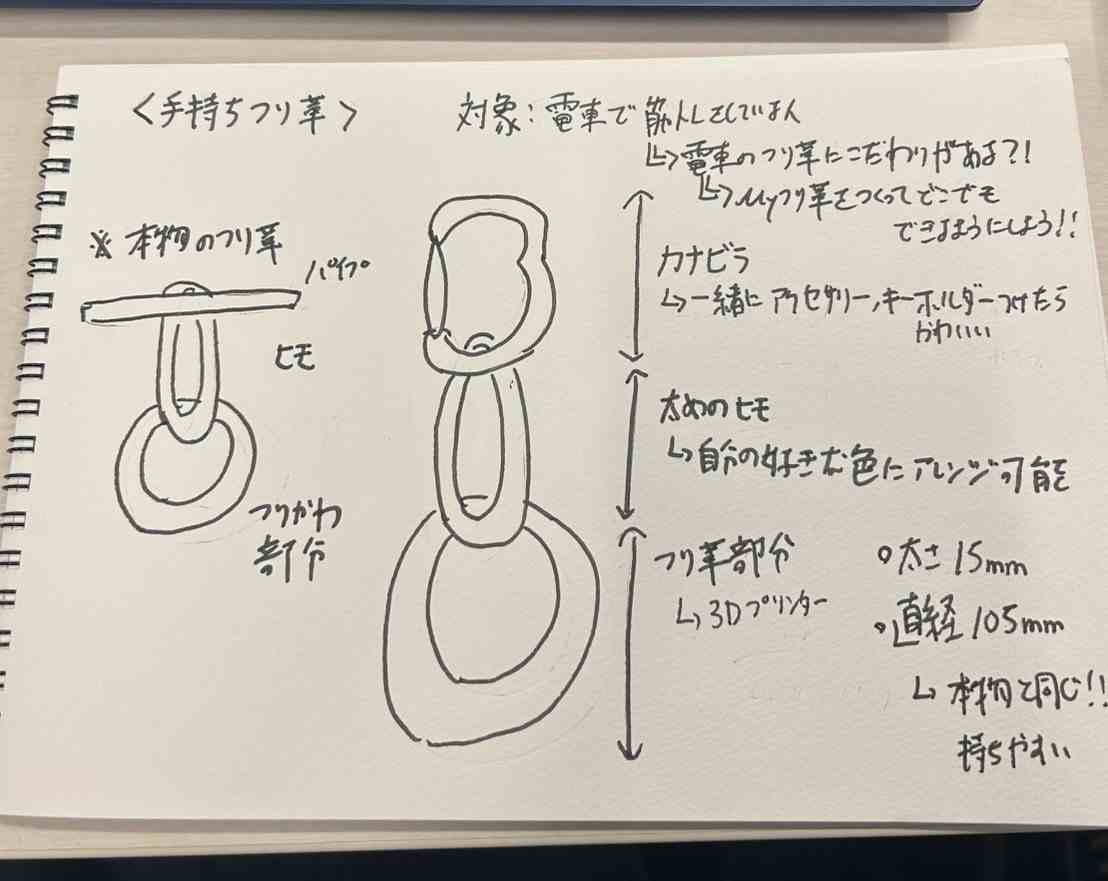 <手持ちつり革>
対象:電車で筋トレをしている
↳電車のつり革にこだわりがある?!
↳Myつり革をつくってどこでも
できるようにしよう!!
※ 本物のつり革
パイプ
ヒモ
つりかわ
部分
カナビラ
↳一緒に アクセサリー、キーホルダーつけたら
かわいい
太めのヒモ
↳自分の好きな色にアレンジ可能
つり革部分
↳3Dプリンター
○太さ 15mm
○直経 105mm
↳ 本物と同じ!!
持ちやすい